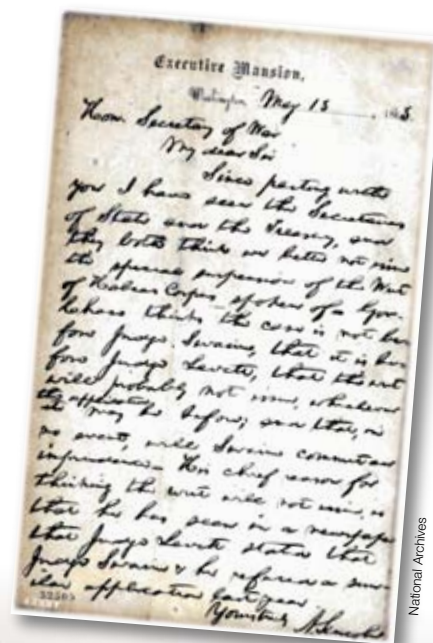 Executive Mansion,
Washington, May 13, 1863.
Hon. Secretary of War
My dear Sir
Since parting with
you I have seen the Secretaries
of State and the Treasury, and
they both think we better not issue
the special suspension of the Writ
of Habeas Corpus spoken of. Gov.
Chase thinks the case is not be-
fore Judge Swaine, that it is be-
fore Judge Levett, that the writ
will probably not issue, whichever
the application
may be before; and that, in
no event, will Swaine commit an
imprudence. His chief reason for
thinking the writ will not issue, is
that he has seen in a newspaper
that Judge Levett stated that
Judge Swaine & he refused a simi-
lar application last year.
Yours truly A. Lincoln
National Archives